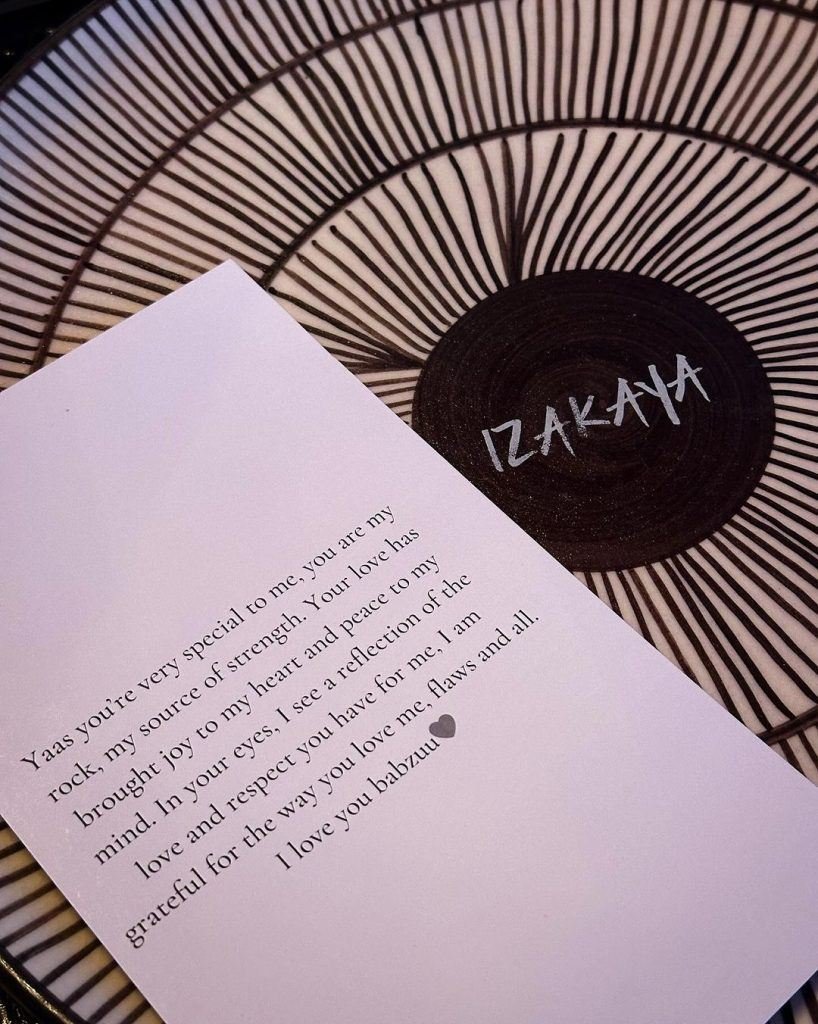 IZAKAYA
Yaas you're very special to me, you are my
rock, my source of strength. Your love has
brought joy to my heart and peace to my
mind. In your eyes, I see a reflection of the
love and respect you have for me, I am
grateful for the way you love me, flaws and all.
I love you babzuu🖤